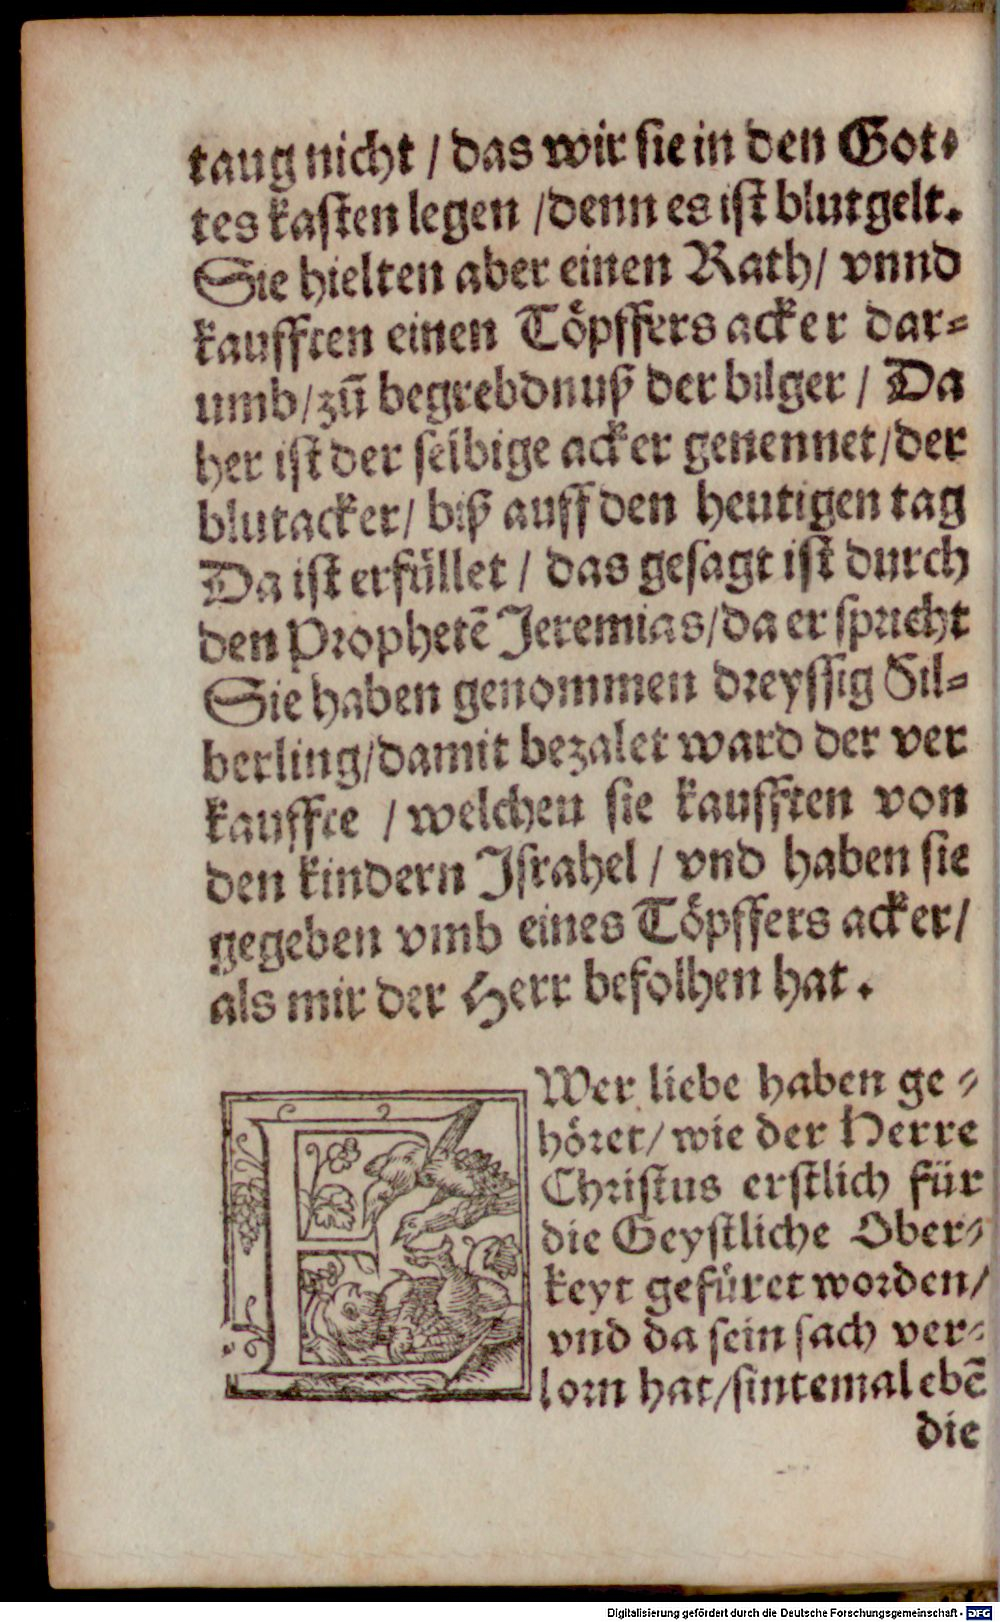 taug nicht / das wir sie in den Got⸗
tes kasten legen / denn es ist blutgelt.
Sie hielten aber einen Rath / vnnd
kaufften einen Töpffers acker dar⸗
umb / zū begrebdnuß der bilger / Da
her ist der selbige acker genennet / der
blutacker / biß auff den heutigen tag
Da ist erfüllet / das gesagt ist durch
den Prophetē Jeremias / da er spricht
Sie haben genommen dreyssig Sil⸗
berling / damit bezalet ward der ver
kauffte / welchen sie kaufften von
den kindern Israhel / vnd haben sie
gegeben vmb eines Töpffers acker /
als mir der Herr befolhen hat.
EWer liebe haben ge⸗
höret / wie der Herre
Christus erstlich für
die Geystliche Ober⸗
keyt gefüret worden /
vnd da sein sach ver⸗
lorn hat / sintemal ebē
die
Digitalisierung gefördert durch die Deutsche Forschungsgemeinschaft - DFG